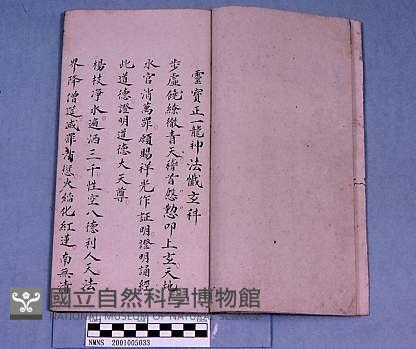 靈寶正一龍神法懺玄科
步虛饒繚徹青天稽首慇懃叩上玄天地
水官消萬罪願賜祥光作証明證明誦經
此道德證明道德大天尊
楊枝淨水遍洒三千性空八德利人天法
界降僧延滅罪愆火焰化紅蓮南無清
國立自然科學博物館
NATIONAL MUSEUM OF NATURAL SCIENCE
NMNS 2001005033